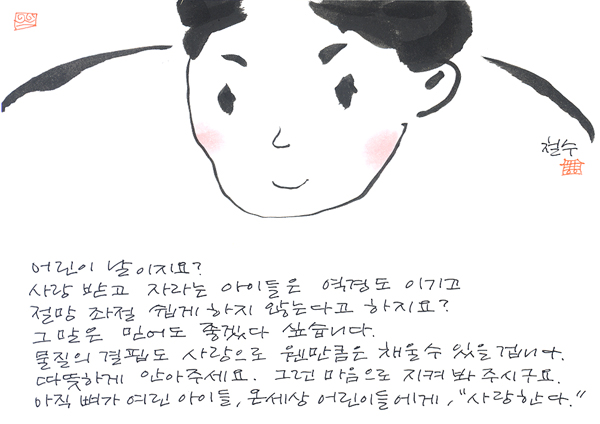 철수
어린이 날이지요?
사랑 받고 자라는 아이들은 역경도 이기고
절망 좌절 쉽게 하지 않는다고 하지요?
그 말은 믿어도 좋겠다 싶습니다.
물질의 결핍도 사랑으로 웬만큼은 채울수 있을겁니다.
따뜻하게 안아주세요. 그런 마음으로 지켜 봐 주시구요.
아직 뼈가 여린 아이들, 온세상 어린이들에게, "사랑한다."